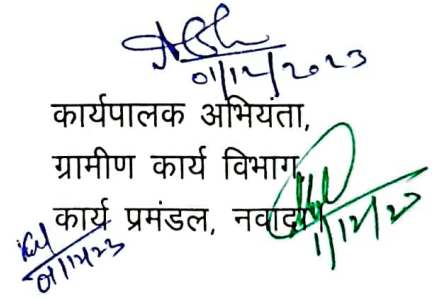 01/12/2023
कार्यपालक अभियंता,
ग्रामीण कार्य विभाग,
कार्य प्रमंडल, नवादा
1/12/23
01/12/23